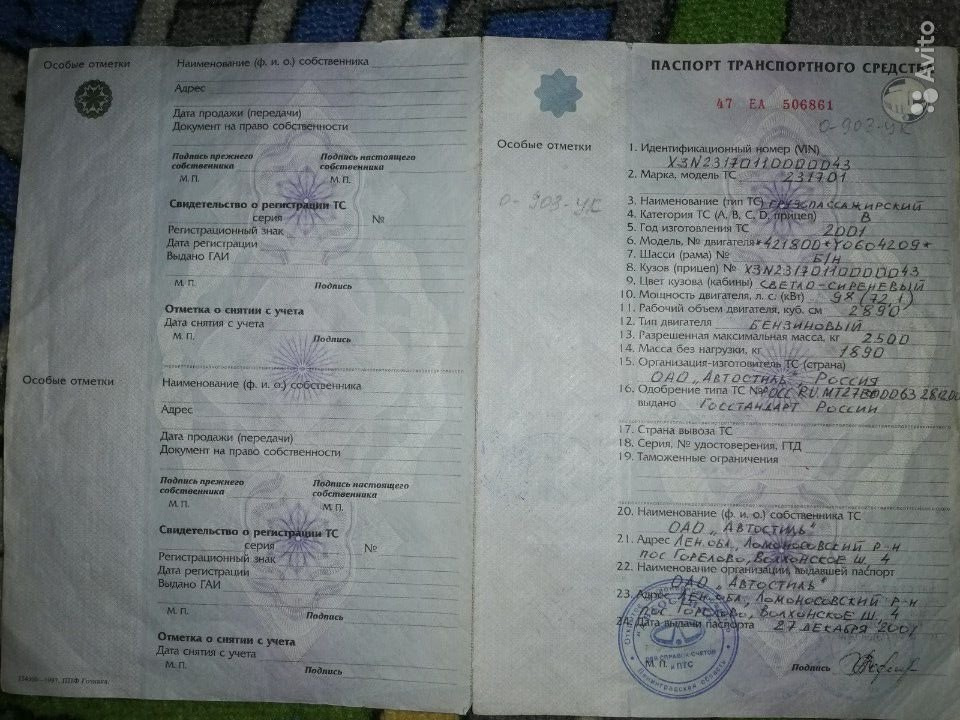 Особые отметки
Наименование (ф. и. о.) собственника
Адрес
Дата продажи (передачи)
Документ на право собственности
Подпись прежнего собственника
Подпись настоящего собственника
М. П.
М. П.
Свидетельство о регистрации ТС
серия №
Регистрационный знак
Дата регистрации
Выдано ГАИ
М. П.
Подпись
Отметка о снятии с учета
Дата снятия с учета
М. П.
Подпись
Особые отметки
Наименование (ф. и. о.) собственника
Адрес
Дата продажи (передачи)
Документ на право собственности
Подпись прежнего собственника
Подпись настоящего собственника
М. П.
М. П.
Свидетельство о регистрации ТС
серия №
Регистрационный знак
Дата регистрации
Выдано ГАИ
М. П.
Подпись
Отметка о снятии с учета
Дата снятия с учета
М. П.
Подпись
Особые отметки
О-903-УК
ПАСПОРТ ТРАНСПОРТНОГО СРЕДСТВ
47 ЕА 506861
О-903-УК
1. Идентификационный номер (VIN)
X3N23170110000043
2. Марка, модель ТС 231701
3. Наименование (тип ТС) ГРУЗОПАССАЖИРСКИЙ
4. Категория ТС (А, В, С, D, прицеп) В
5. Год изготовления ТС 2001
6. Модель, № двигателя *421800*Y0604209*
7. Шасси (рама) № Б/Н
8. Кузов (прицеп) № X3N23170110000043
9. Цвет кузова (кабины) СВЕТЛО-СИРЕНЕВЫЙ
10. Мощность двигателя, л. с. (кВт) 98 (72,1)
11. Рабочий объем двигателя, куб. см 2890
12. Тип двигателя БЕНЗИНОВЫЙ
13. Разрешенная максимальная масса, кг 2500
14. Масса без нагрузки, кг 1890
15. Организация-изготовитель ТС (страна)
ОАО „АВТОСТИЛЬ", РОССИЯ
16. Одобрение типа ТС № РОСС RU.МТ27.В00063
выдано ГОССТАНДАРТ РОССИИ
17. Страна вывоза ТС
18. Серия, № удостоверения, ГТД
19. Таможенные ограничения
20. Наименование (ф. и. о.) собственника ТС
ОАО „АВТОСТИЛЬ"
21. Адрес ЛЕН.ОБЛ., ЛОМОНОСОВСКИЙ Р-Н
ПОС ГОРЕЛОВО, ВОЛХОНСКОЕ Ш. 4
22. Наименование организации, выдавшей паспорт
ОАО „АВТОСТИЛЬ"
23. Адрес ЛЕН.ОБЛ., ЛОМОНОСОВСКИЙ Р-Н
ПОС ГОРЕЛОВО, ВОЛХОНСКОЕ Ш., 4
24. Дата выдачи паспорта 27 ДЕКАБРЯ 2001
М. П.
Подпись
ДЛЯ СПРАВОК-СЧЕТОВ
и ПТС
Ленинградская область
Avito